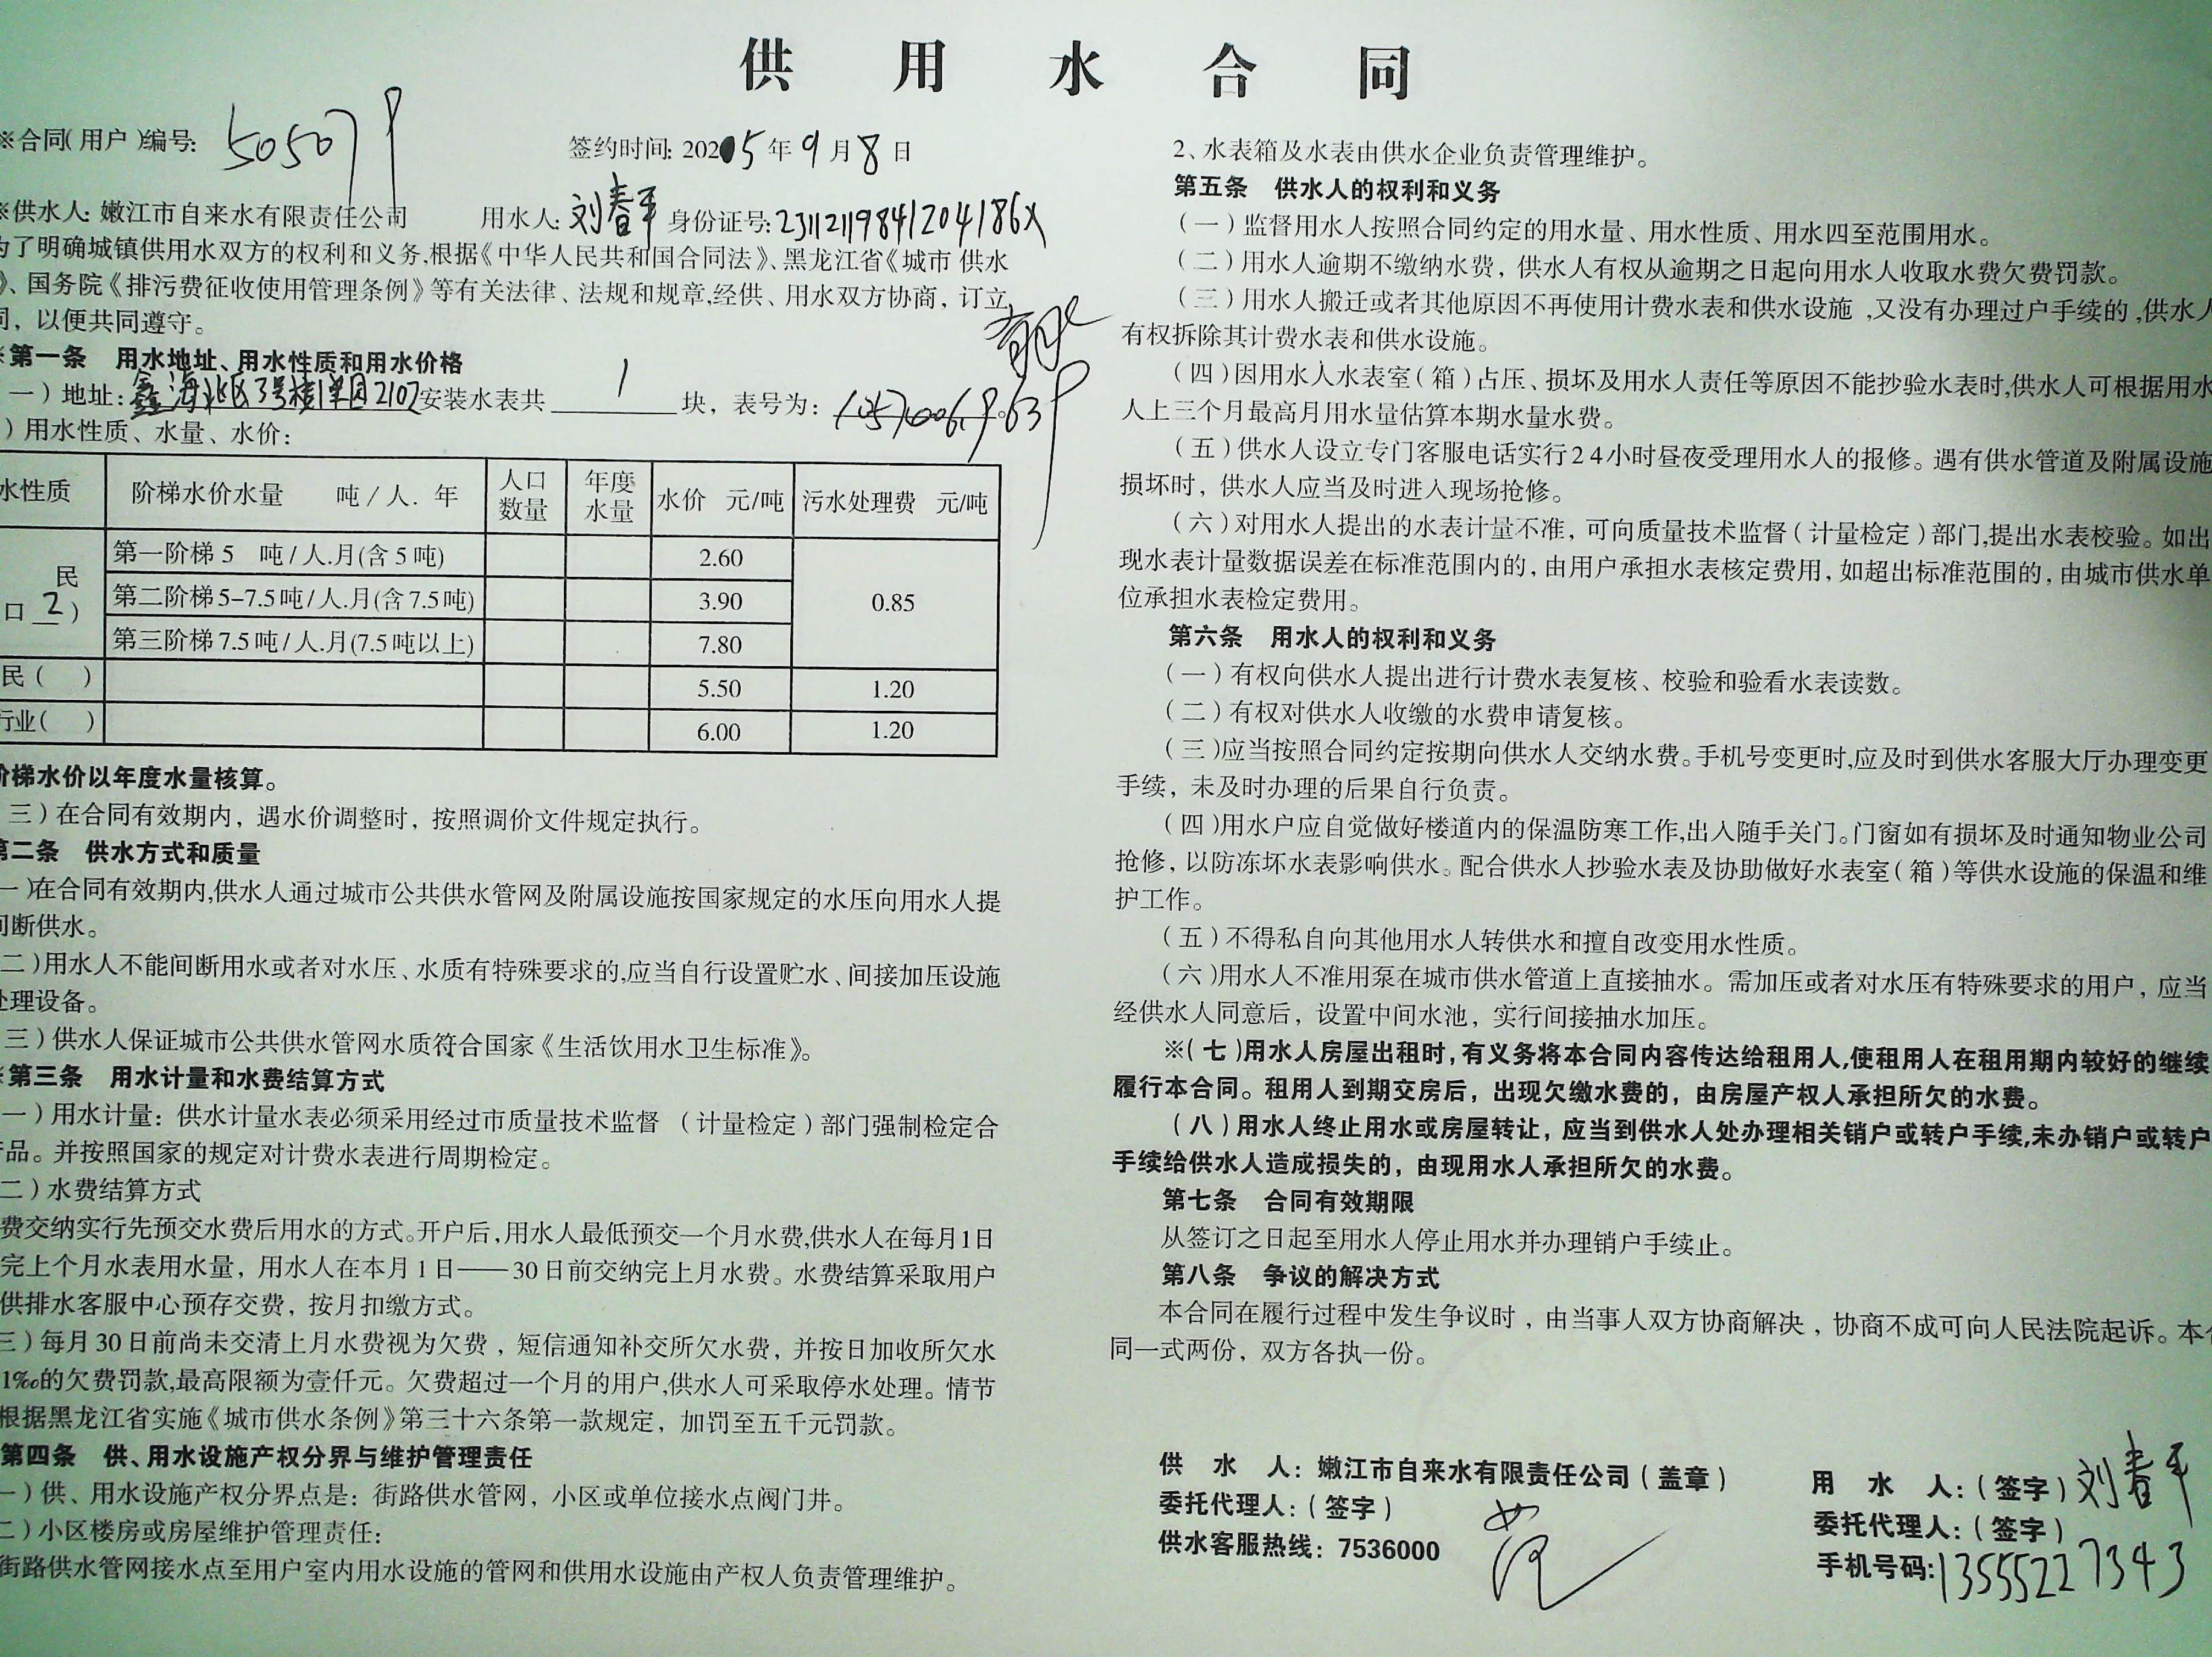 供用水合同
※合同(用户)编号: 505079
签约时间: 2025年9月8日
※供水人: 嫩江市自来水有限责任公司 用水人: 刘春平 身份证号: 23112119841204186X
为了明确城镇供用水双方的权利和义务,根据《中华人民共和国合同法》、黑龙江省《城市 供水
》、国务院《排污费征收使用管理条例》等有关法律、法规和规章,经供、用水双方协商，订立
同，以便共同遵守。
※第一条 用水地址、用水性质和用水价格
一）地址: 鑫海北区3号楼1单元2107 安装水表共 1 块，表号为：
）用水性质、水量、水价：
水性质 阶梯水价水量 吨/人.年 人口数量 年度水量 水价 元/吨 污水处理费 元/吨
民
口 2 ）
第一阶梯 5 吨/人.月(含 5 吨) 2.60
第二阶梯 5-7.5吨/人.月(含 7.5吨) 3.90 0.85
第三阶梯 7.5吨/人.月(7.5吨以上) 7.80
民（ ） 5.50 1.20
行业（ ） 6.00 1.20
阶梯水价以年度水量核算。
三）在合同有效期内，遇水价调整时，按照调价文件规定执行。
第二条 供水方式和质量
一)在合同有效期内,供水人通过城市公共供水管网及附属设施按国家规定的水压向用水人提
间断供水。
二)用水人不能间断用水或者对水压、水质有特殊要求的,应当自行设置贮水、间接加压设施
处理设备。
三）供水人保证城市公共供水管网水质符合国家《生活饮用水卫生标准》。
※第三条 用水计量和水费结算方式
一）用水计量：供水计量水表必须采用经过市质量技术监督（计量检定）部门强制检定合
品。并按照国家的规定对计费水表进行周期检定。
二）水费结算方式
费交纳实行先预交水费后用水的方式。开户后,用水人最低预交一个月水费,供水人在每月1日
完上个月水表用水量，用水人在本月 1 日——30 日前交纳完上月水费。水费结算采取用户
供排水客服中心预存交费，按月扣缴方式。
三）每月 30 日前尚未交清上月水费视为欠费，短信通知补交所欠水费，并按日加收所欠水
1‰的欠费罚款,最高限额为壹仟元。欠费超过一个月的用户,供水人可采取停水处理。情节
根据黑龙江省实施《城市供水条例》第三十六条第一款规定，加罚至五千元罚款。
第四条 供、用水设施产权分界与维护管理责任
一）供、用水设施产权分界点是：街路供水管网，小区或单位接水点阀门井。
二）小区楼房或房屋维护管理责任：
街路供水管网接水点至用户室内用水设施的管网和供用水设施由产权人负责管理维护。
2、水表箱及水表由供水企业负责管理维护。
第五条 供水人的权利和义务
（一）监督用水人按照合同约定的用水量、用水性质、用水四至范围用水。
（二）用水人逾期不缴纳水费，供水人有权从逾期之日起向用水人收取水费欠费罚款。
（三）用水人搬迁或者其他原因不再使用计费水表和供水设施，又没有办理过户手续的,供水人
有权拆除其计费水表和供水设施。
（四）因用水人水表室（箱）占压、损坏及用水人责任等原因不能抄验水表时,供水人可根据用水
人上三个月最高月用水量估算本期水量水费。
（五）供水人设立专门客服电话实行24小时昼夜受理用水人的报修。遇有供水管道及附属设施
损坏时，供水人应当及时进入现场抢修。
（六）对用水人提出的水表计量不准，可向质量技术监督（计量检定）部门,提出水表校验。如出
现水表计量数据误差在标准范围内的，由用户承担水表核定费用，如超出标准范围的，由城市供水单
位承担水表检定费用。
第六条 用水人的权利和义务
（一）有权向供水人提出进行计费水表复核、校验和验看水表读数。
（二）有权对供水人收缴的水费申请复核。
（三)应当按照合同约定按期向供水人交纳水费。手机号变更时,应及时到供水客服大厅办理变更
手续，未及时办理的后果自行负责。
（四)用水户应自觉做好楼道内的保温防寒工作,出入随手关门。门窗如有损坏及时通知物业公司
抢修，以防冻坏水表影响供水。配合供水人抄验水表及协助做好水表室（箱）等供水设施的保温和维
护工作。
（五）不得私自向其他用水人转供水和擅自改变用水性质。
（六)用水人不准用泵在城市供水管道上直接抽水。需加压或者对水压有特殊要求的用户，应当
经供水人同意后，设置中间水池，实行间接抽水加压。
※（七)用水人房屋出租时,有义务将本合同内容传达给租用人,使租用人在租用期内较好的继续
履行本合同。租用人到期交房后，出现欠缴水费的，由房屋产权人承担所欠的水费。
（八）用水人终止用水或房屋转让，应当到供水人处办理相关销户或转户手续,未办销户或转户
手续给供水人造成损失的，由现用水人承担所欠的水费。
第七条 合同有效期限
从签订之日起至用水人停止用水并办理销户手续止。
第八条 争议的解决方式
本合同在履行过程中发生争议时，由当事人双方协商解决，协商不成可向人民法院起诉。本合
同一式两份，双方各执一份。
供 水 人：嫩江市自来水有限责任公司（盖章）
委托代理人：（签字）
供水客服热线：7536000
用 水 人：（签字）刘春平
委托代理人：（签字）
手机号码: 13555227343